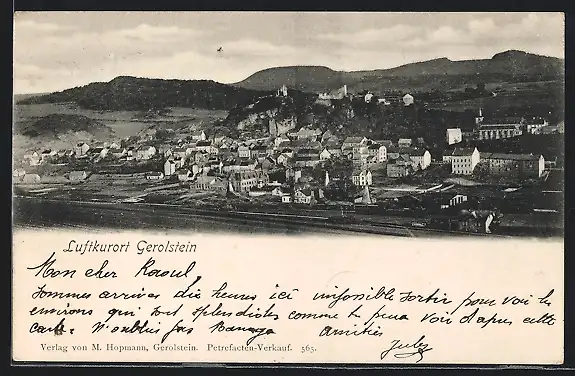 Luftkurort Gerolstein
Mon cher Raoul
Sommes arrivés dix heures ici impossible sortir pour voir les
environs qui sont splendides comme tu peux voir d'après cette
carte. N'oublie pas Amitiés
Jules
Verlag von M. Hopmann, Gerolstein. Petrefacten-Verkauf. 565.